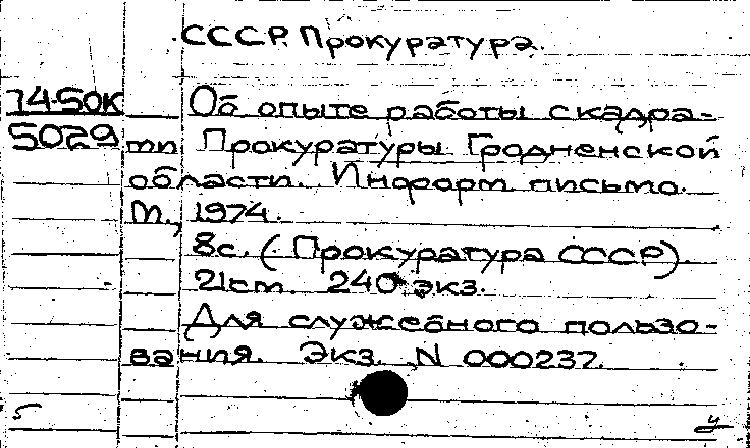 СССР. Прокуратура.
74-50К
5029
Об опыте работы с кадра-
ми Прокуратуры Гродненской
области. Информ. письмо.
М., 1974.
8с. (Прокуратура СССР).
21см. 240 экз.
Для служебного пользо-
вания. Экз. N 000237.
5